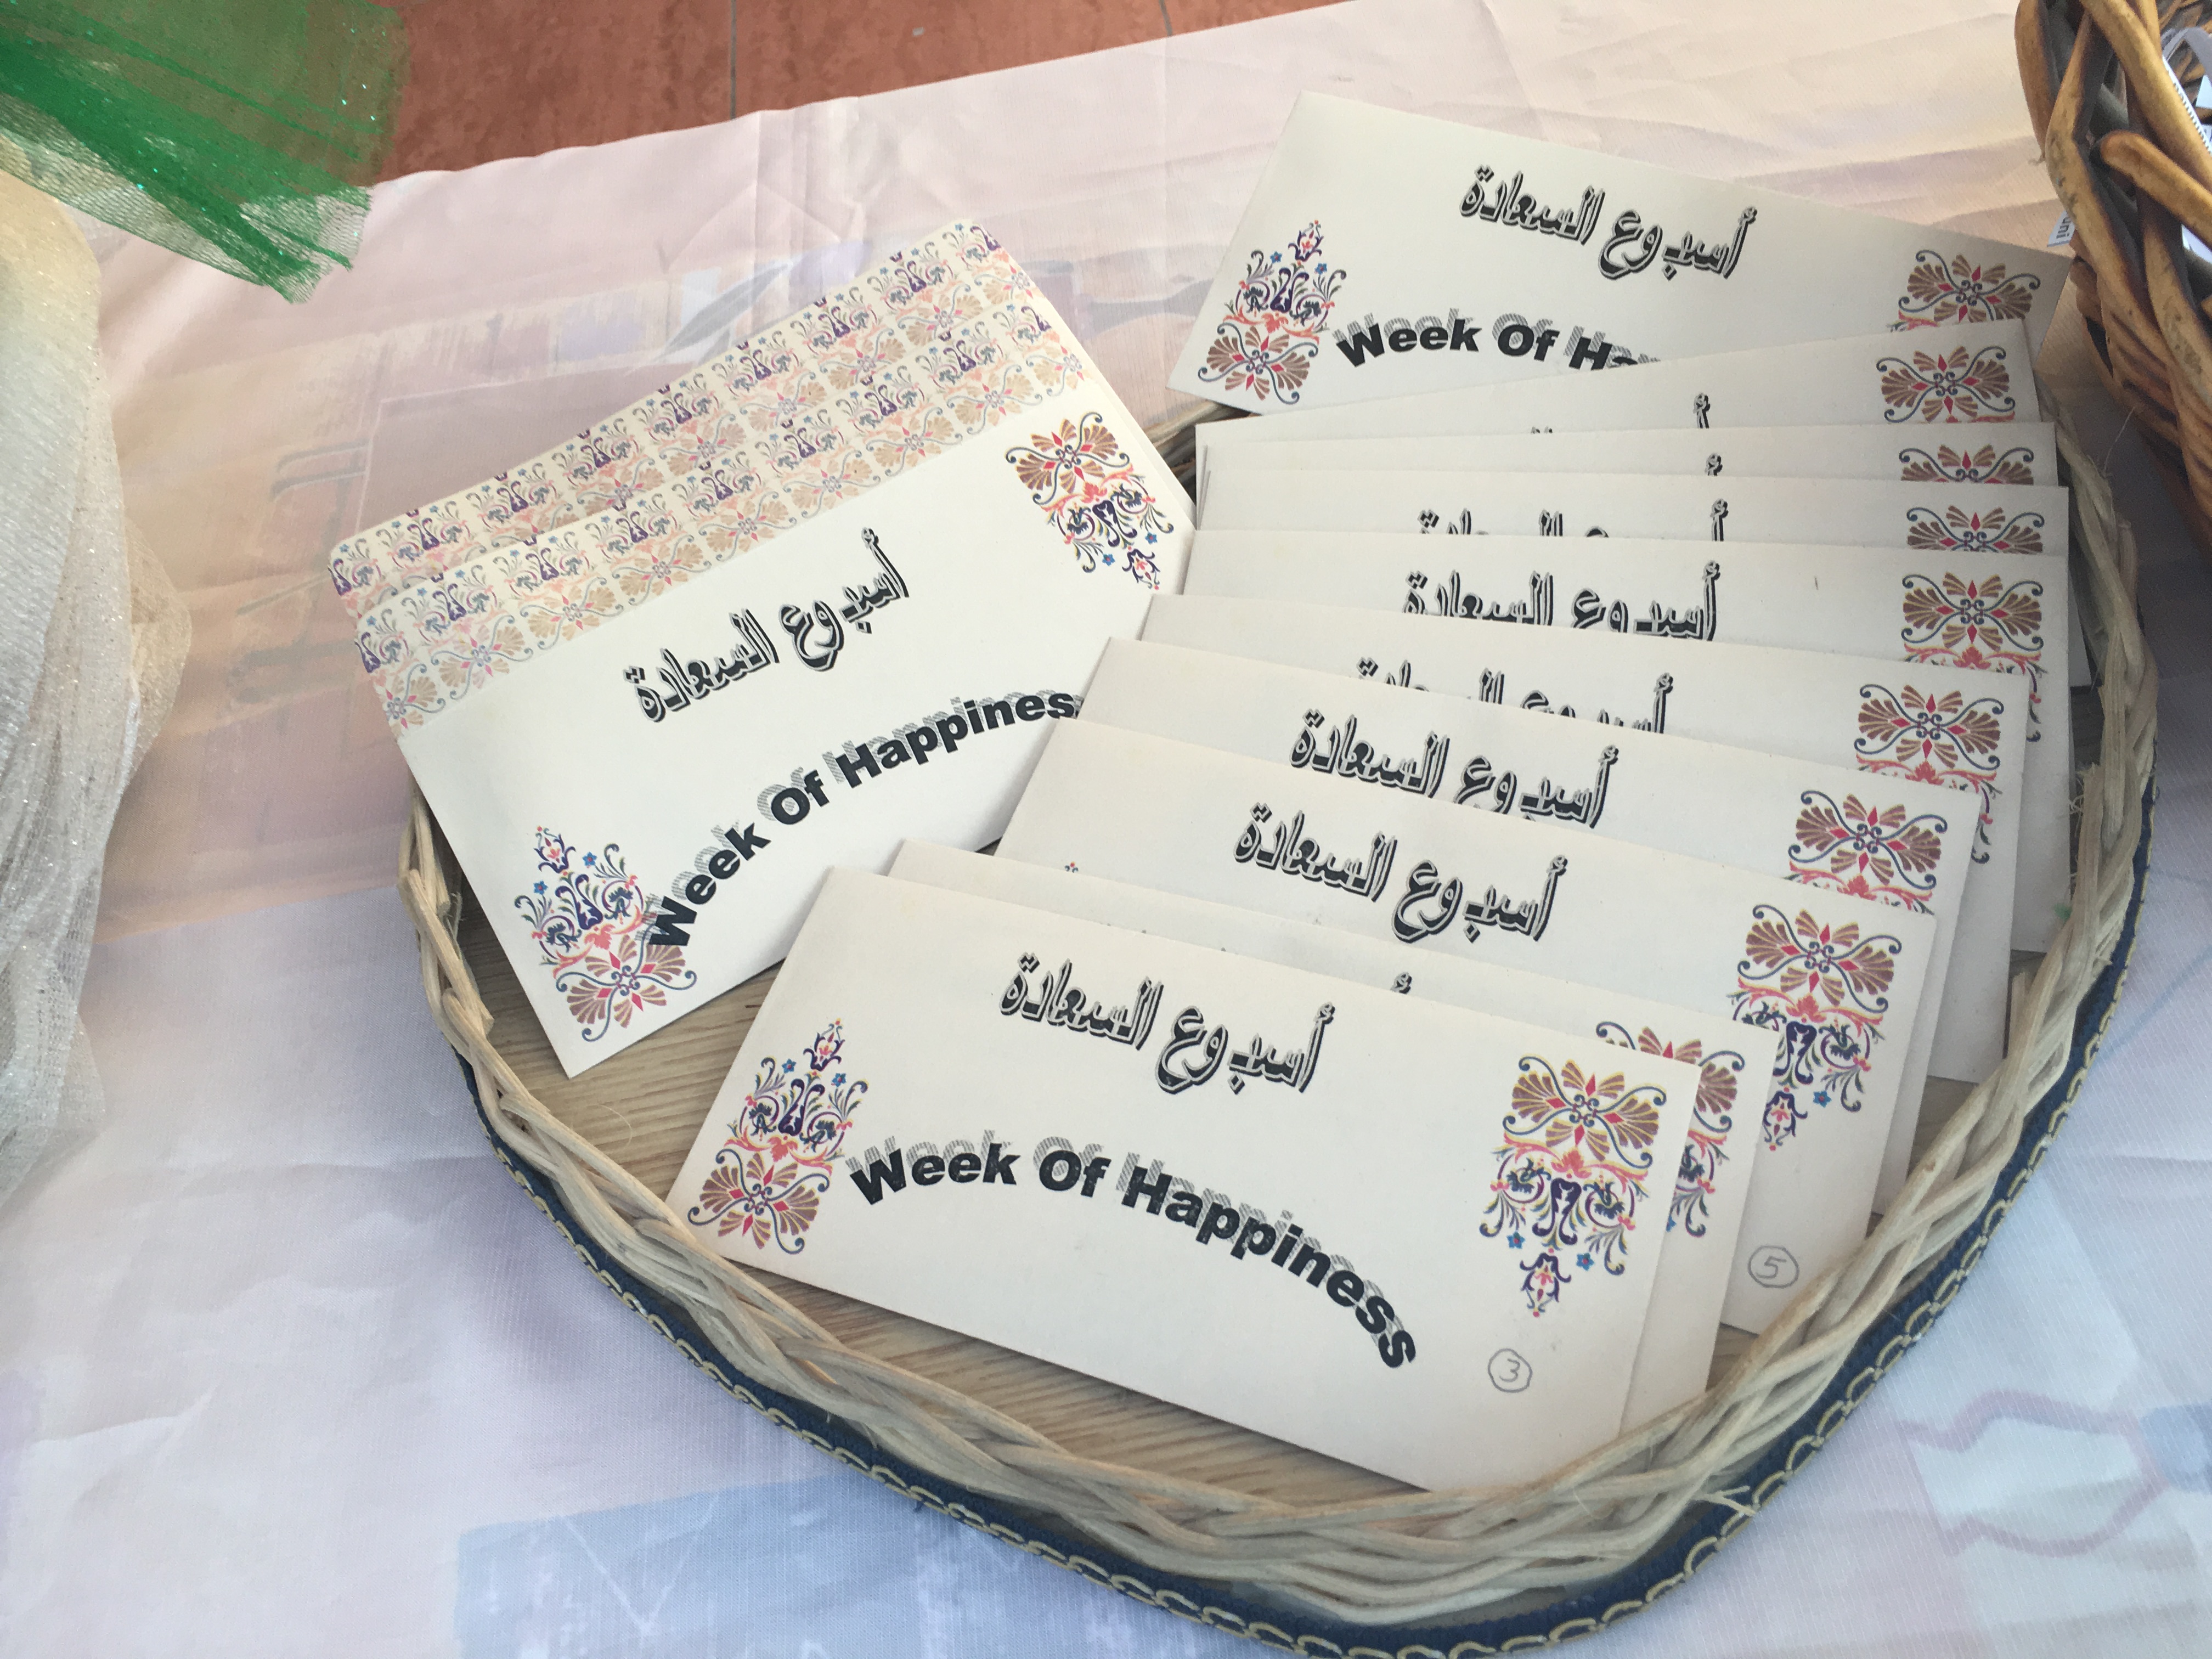 أسبوع السعادة
Week Of Ha
أسبوع السعادة
أسبوع السعادة
أسبوع السعادة
أسبوع السعادة
Week Of Happiness
أسبوع السعادة
5
أسبوع السعادة
Week Of Happiness
3